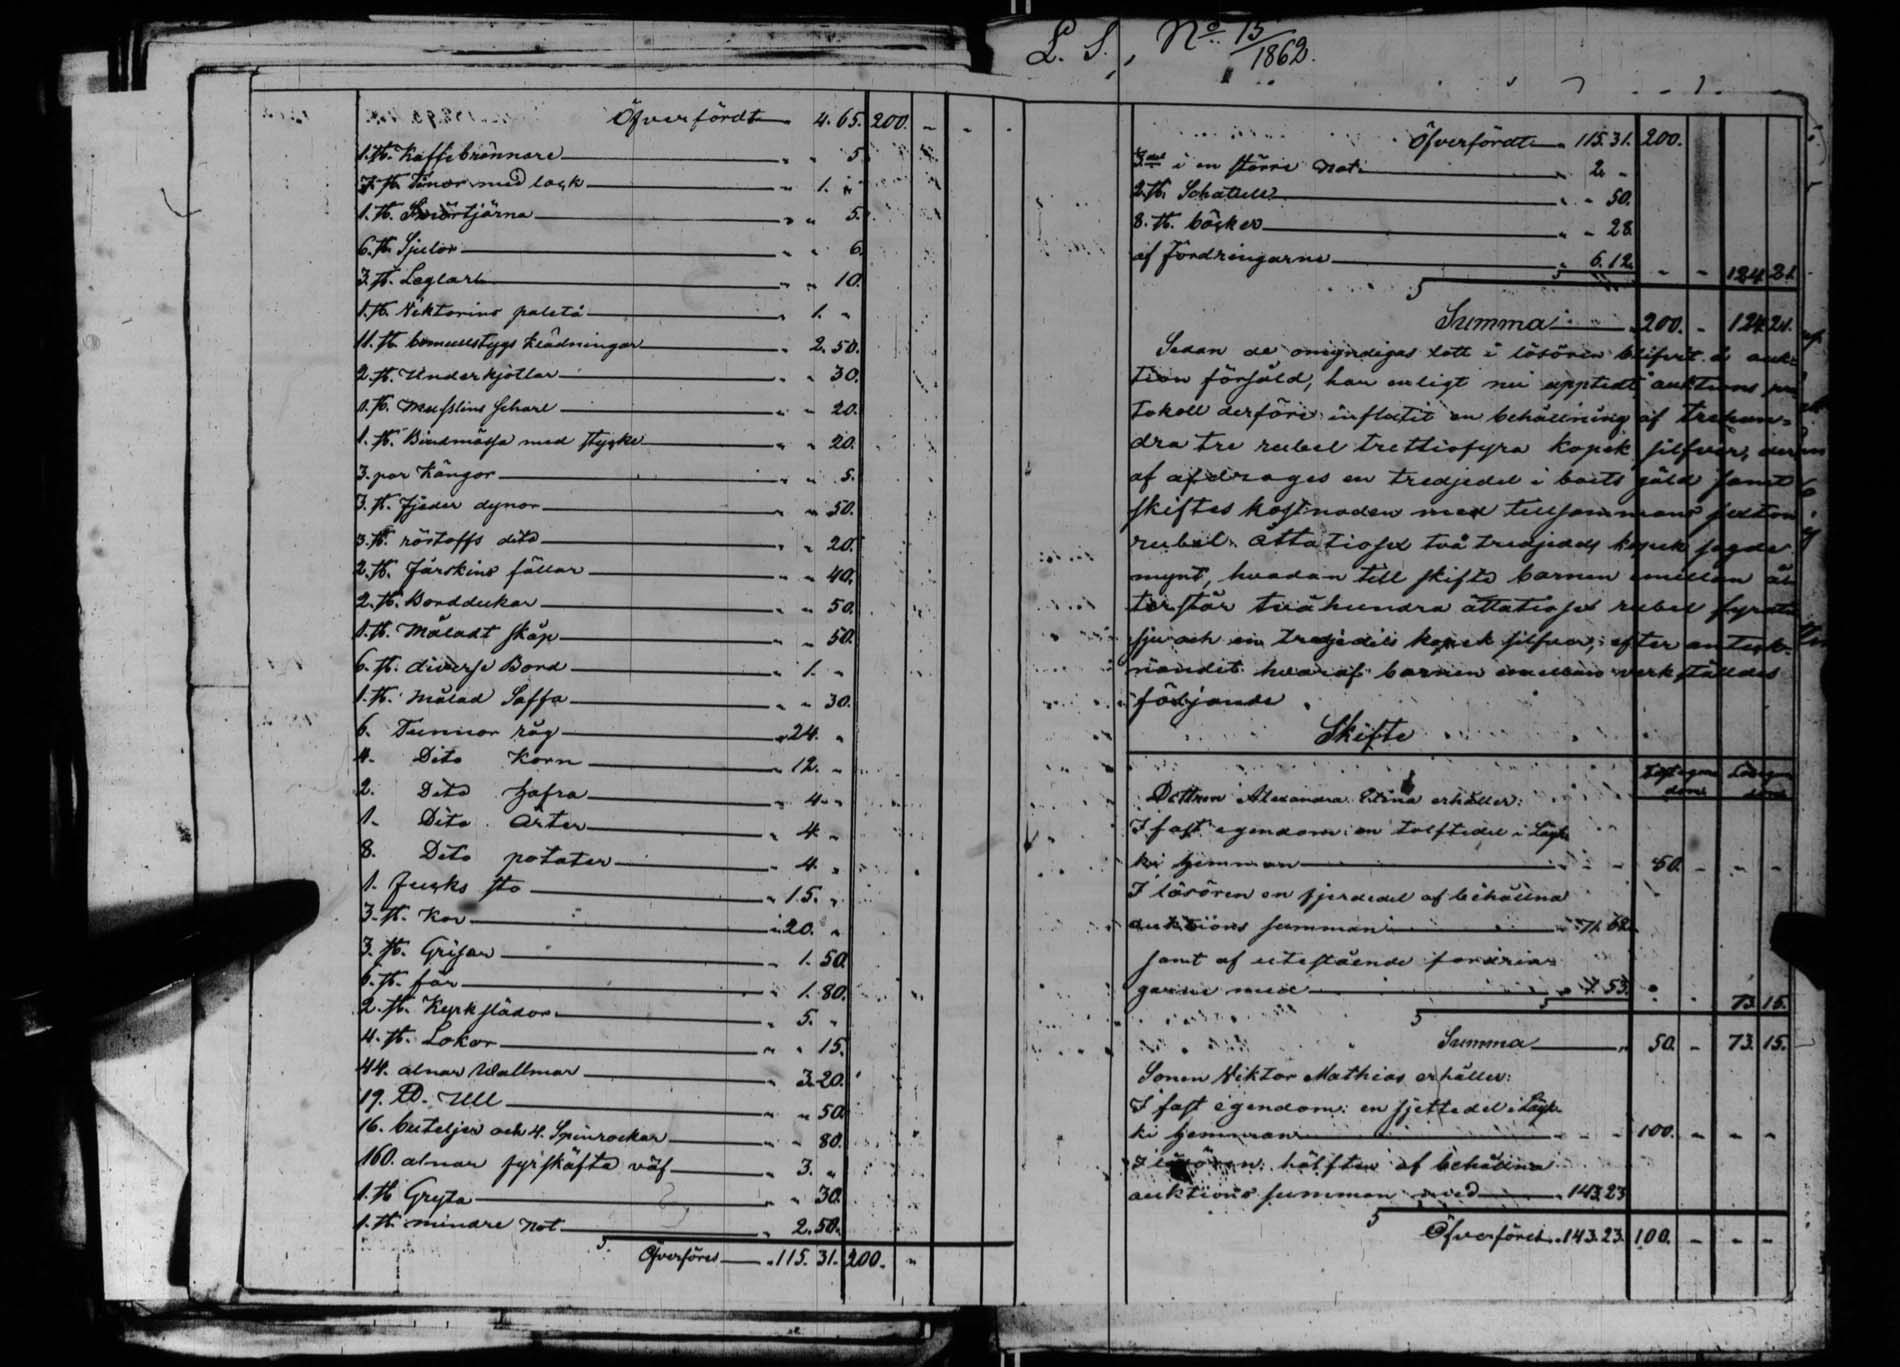 L. S., No 15/1862.
Öfverfördt 4. 65. 200. -
1. st. Kaffebrännare " " 5.
7. st. Tinor med lock " 1. "
1. st. Smörtjärna " " 5.
6. st. Sjulor " " 6.
3. st. Leglare " " 10.
1. st. Viktorins paletå " 1. "
11. st. bomullstygs klädningar " 2. 50.
2. st. Underkjollar " " 30.
1. st. Musslins Scharl " " 20.
1. st. Bindmössa med stycke " " 20.
3. par Kängor " " 5.
3. st. fjeder dynor " " 50.
3. st. röstoffs dito " " 20.
2. st. fårskins fällar " " 40.
2. st. Borddukar " " 50.
1. st. Måladt skåp " " 50.
6. st. diverse Bord " 1. "
1. st. målad Saffa " " 30.
6. Tunnor råg " 24. "
4. Dito Korn " 12. "
2. Dito hafra " 4. "
1. Dito Ärter " 4. "
8. Dito potater " 4. "
1. fucks sto " 15. "
3. st. Kor " 20. "
3. st. Grisar " 1. 50.
6. st. får " 1. 80.
2. st. Kyrkslädor " 5. "
4. st. Lokor " " 15.
44. alnar Wallmar " 3. 20.
19. ℔. Ull " " 50.
16. buteljer och 4. Spinrockar " " 80.
160. alnar fyrskäfta väf " 3. "
1. st Gryta " " 30.
1. st. mindre not " 2. 50.
Öfverföres " 115. 31. 200. "
Öfverfördt " 115. 31. 200.
i en större not " 2. "
2. st. Schatull " " 50.
8. st. böcker " " 28.
af fordringarne " 6. 12. - - 124 21.
Summa " 200. - 124 21.
Sedan de omyndigas lott i lösören blifvit å auk=
tion försåld, har enligt nu uppteldt auktions pro
tokoll derföre influtit en behållning af trehun=
dra tre rubel trettiofyra kopek silfver, der
af afdrages en tredjedel i boets gäld samt
skiftes kostnaden med tillsammans sexton
rubel åttatiosex två tredjedels kopek sagde
mynt, hvadan till skifte barnen emellan åt
terstår tvåhundra åttatiosex rubel fyratio
sju och en tredjedels kopek silfver, efter anteck=
nandet hvaraf barnen emellan verkställdes
följande
Skifte
Fast egen Lösegen
dom dom
Dottren Alexandra Stina erhåller:
I fast egendom: en tolftedel i
ki hemman - - - 50. - - -
I lösören en fjerdedel af behållna
auktions summan " 71. 62.
samt af utestående fordrin=
garne med " 1. 53. " " 73. 15.
Summa " 50. - 73. 15.
Sonen Viktor Mathias erhåller:
I fast egendom: en sjettedel i
ki hemman - - - 100. - - -
I lösören: hälften af behållna
auktions summan med " 143. 23
Öfverföres " 143. 23. 100. - - -